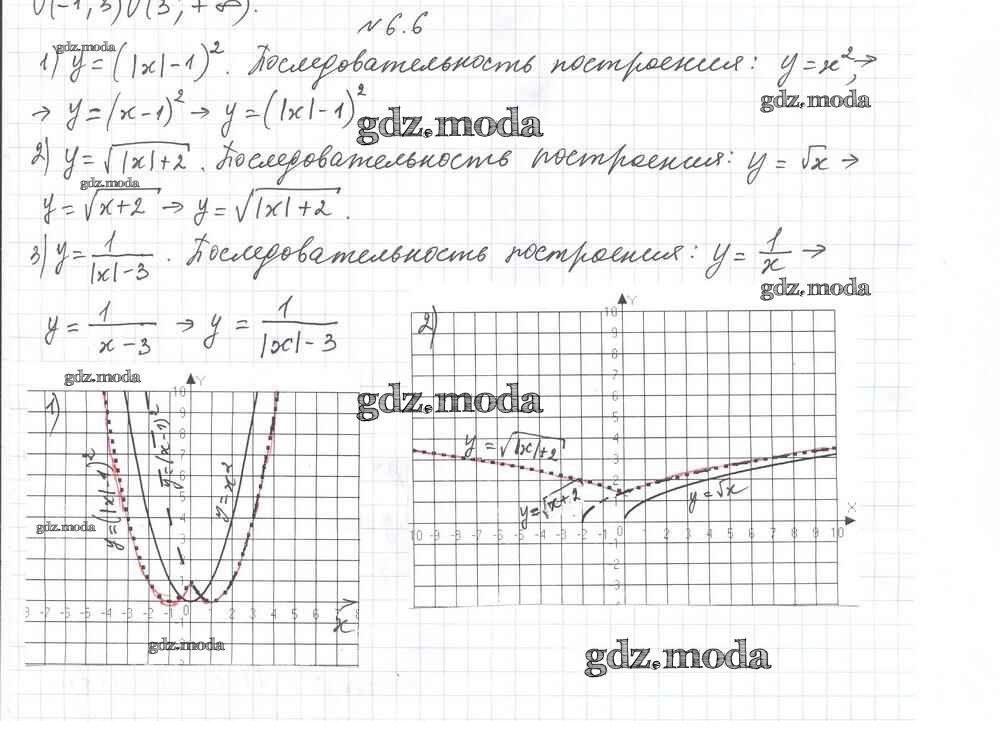 ∪(-1; 3)∪(3; +∞).
№6.6
1) y = (|x|-1)². Последовательность построения: y = x², →
→ y = (x-1)² → y = (|x|-1)²
2) y = √(|x|+2). Последовательность построения: y = √x →
y = √(x+2) → y = √(|x|+2).
3) y = 1/(|x|-3). Последовательность построения: y = 1/x →
y = 1/(x-3) → y = 1/(|x|-3)
gdz.moda
gdz.moda
gdz.moda
gdz.moda
gdz.moda
gdz.moda
gdz.moda
gdz.moda
gdz.moda
gdz.moda
1)
Y
10
9
8
7
6
5
4
3
2
1
y = (|x|-1)²
y = (x-1)²
y = x²
-8 -7 -6 -5 -4 -3 -2 -1 0 1 2 3 4 5 6 7 8
x
2)
Y
10
9
8
7
6
5
4
3
2
1
y = √(|x|+2)
y = √(x+2)
y = √x
X
10 -9 -8 -7 -6 -5 -4 -3 -2 -1 0 1 2 3 4 5 6 7 8 9 10